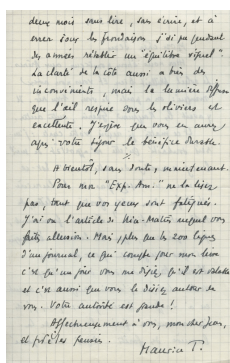 deux mois sans lire, sans écrire, et à
errer sous les frondaisons j'ai pu pendant
des années rétablir un "équilibre visuel".
La clarté de la côte aussi a bien des
inconvénients, mais la lumière
que l'œil respire sous les oliviers est
excellente. J'espère que vous en aurez
après votre séjour le bénéfice durable.
A bientôt, sans doute, maintenant.
Pour mon "Exp. Am." ne la lisez
pas, tant que vos yeux sont fatigués.
J'ai vu l'article de Nice-Matin auquel vous
faites allusion. Mais plus que les 200 lignes
d'un journal, ce qui compte pour mon livre
c'est qu'un jour vous me disiez qu'il est valable
et c'est aussi que vous le disiez autour de
vous. Votre autorité est grande !
Affectueusement à vous, mon cher Jean,
et fidèles pensées.
Maurice T.